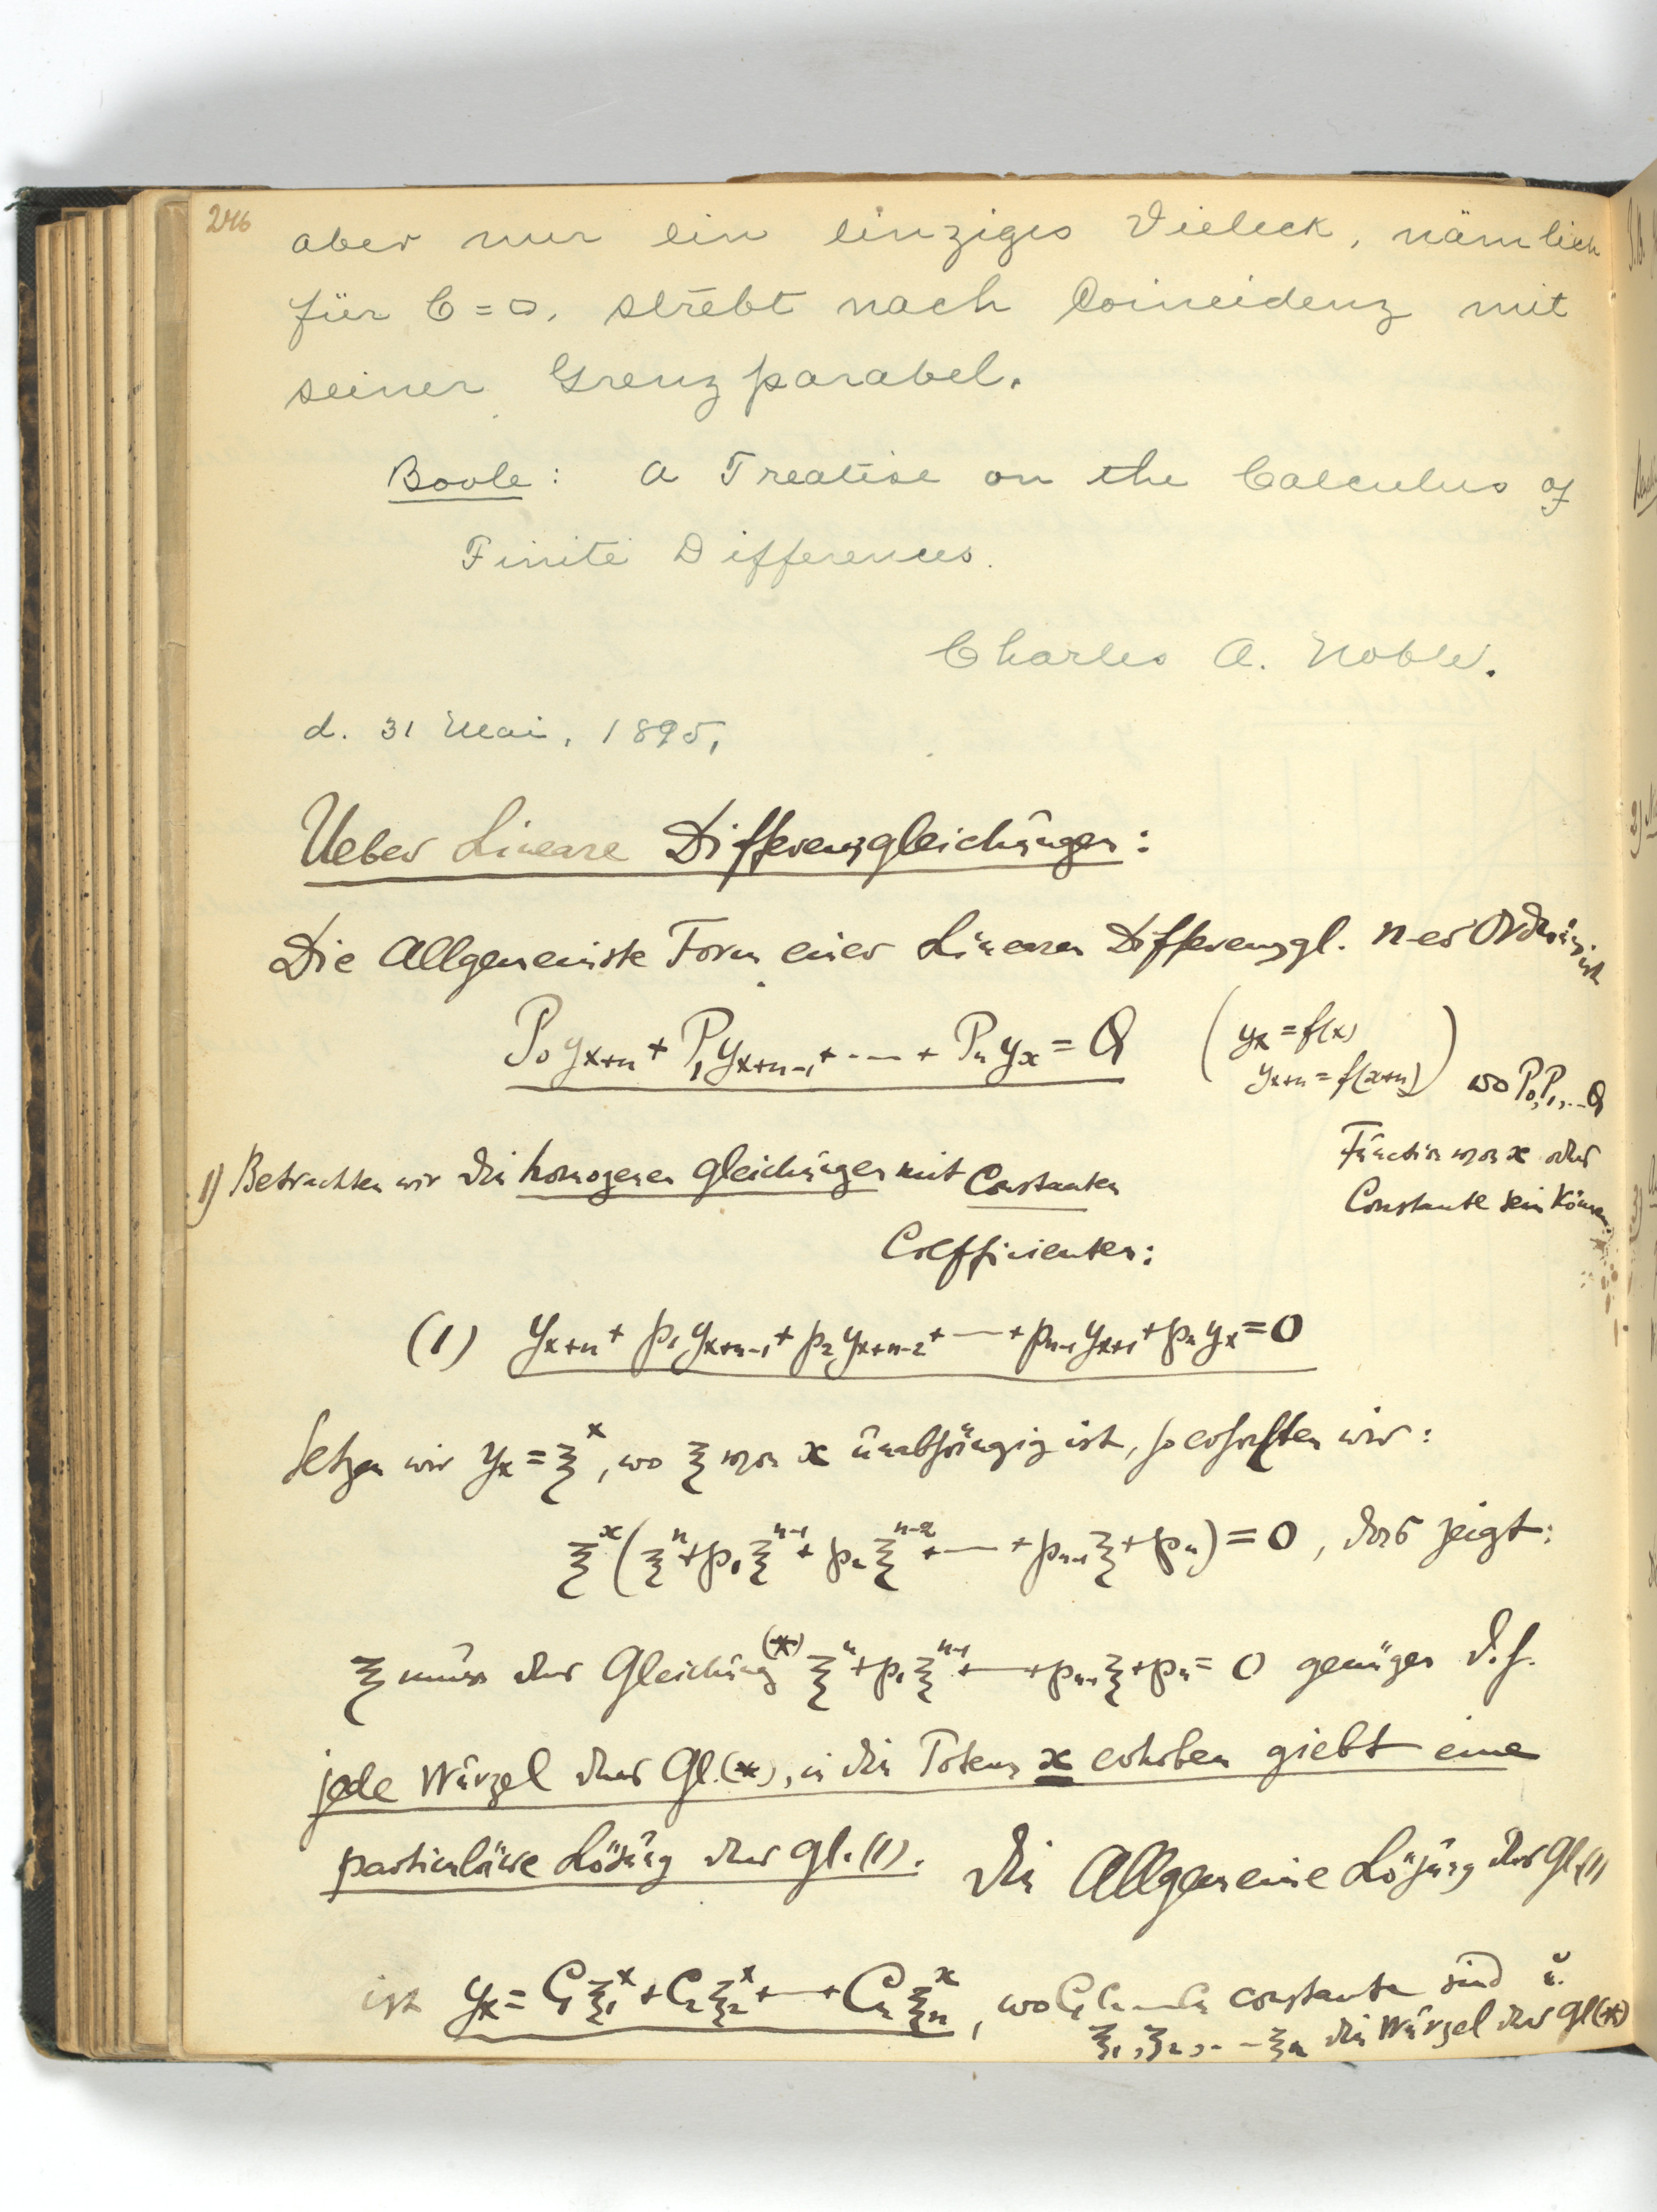 246
aber nur ein einziges Vieleck, nämlich
für C = 0, strebt nach Coincidenz mit
seiner Grenzparabel.
Boole: A Treatise on the Calculus of
Finite Differences.
Charles A. Noble.
d. 31 Mai, 1895,
Ueber Lineare Differenzgleichungen:
Die Allgemeinste Form einer Linearen Differenzgl. n-er Ordnung ist
P₀yₓ₊ₙ + P₁yₓ₊ₙ₋₁ + ⋯ + Pₙyₓ = Q (yₓ = f(x)
yₓ₊ₙ = f(x+n)) wo P₀, P₁, … Q
Function von x oder
Constante sein können.
1) Betrachten wir die homogenen Gleichungen mit Constanten
Coefficienten:
(1) yₓ₊ₙ + p₁yₓ₊ₙ₋₁ + p₂yₓ₊ₙ₋₂ + ⋯ + pₙ₋₁yₓ₊₁ + pₙyₓ = 0
Setzen wir yₓ = ξˣ, wo ξ von x unabhängig ist, so erhalten wir:
ξˣ(ξⁿ + p₁ξⁿ⁻¹ + p₂ξⁿ⁻² + ⋯ + pₙ₋₁ξ + pₙ) = 0, das zeigt:
ξ muss der Gleichung (*) ξⁿ + p₁ξⁿ⁻¹ + ⋯ + pₙ₋₁ξ + pₙ = 0 genügen d.h.
jede Wurzel der Gl.(*), in die Potenz x erhoben giebt eine
particuläre Lösung der Gl.(1). Die Allgemeine Lösung der Gl.(1)
ist yₓ = C₁ξ₁ˣ + C₂ξ₂ˣ + ⋯ + Cₙξₙˣ, wo C₁ C₂ ⋯ Cₙ constante sind u.
ξ₁, ξ₂, ⋯ ξₙ die Wurzel der Gl(*)